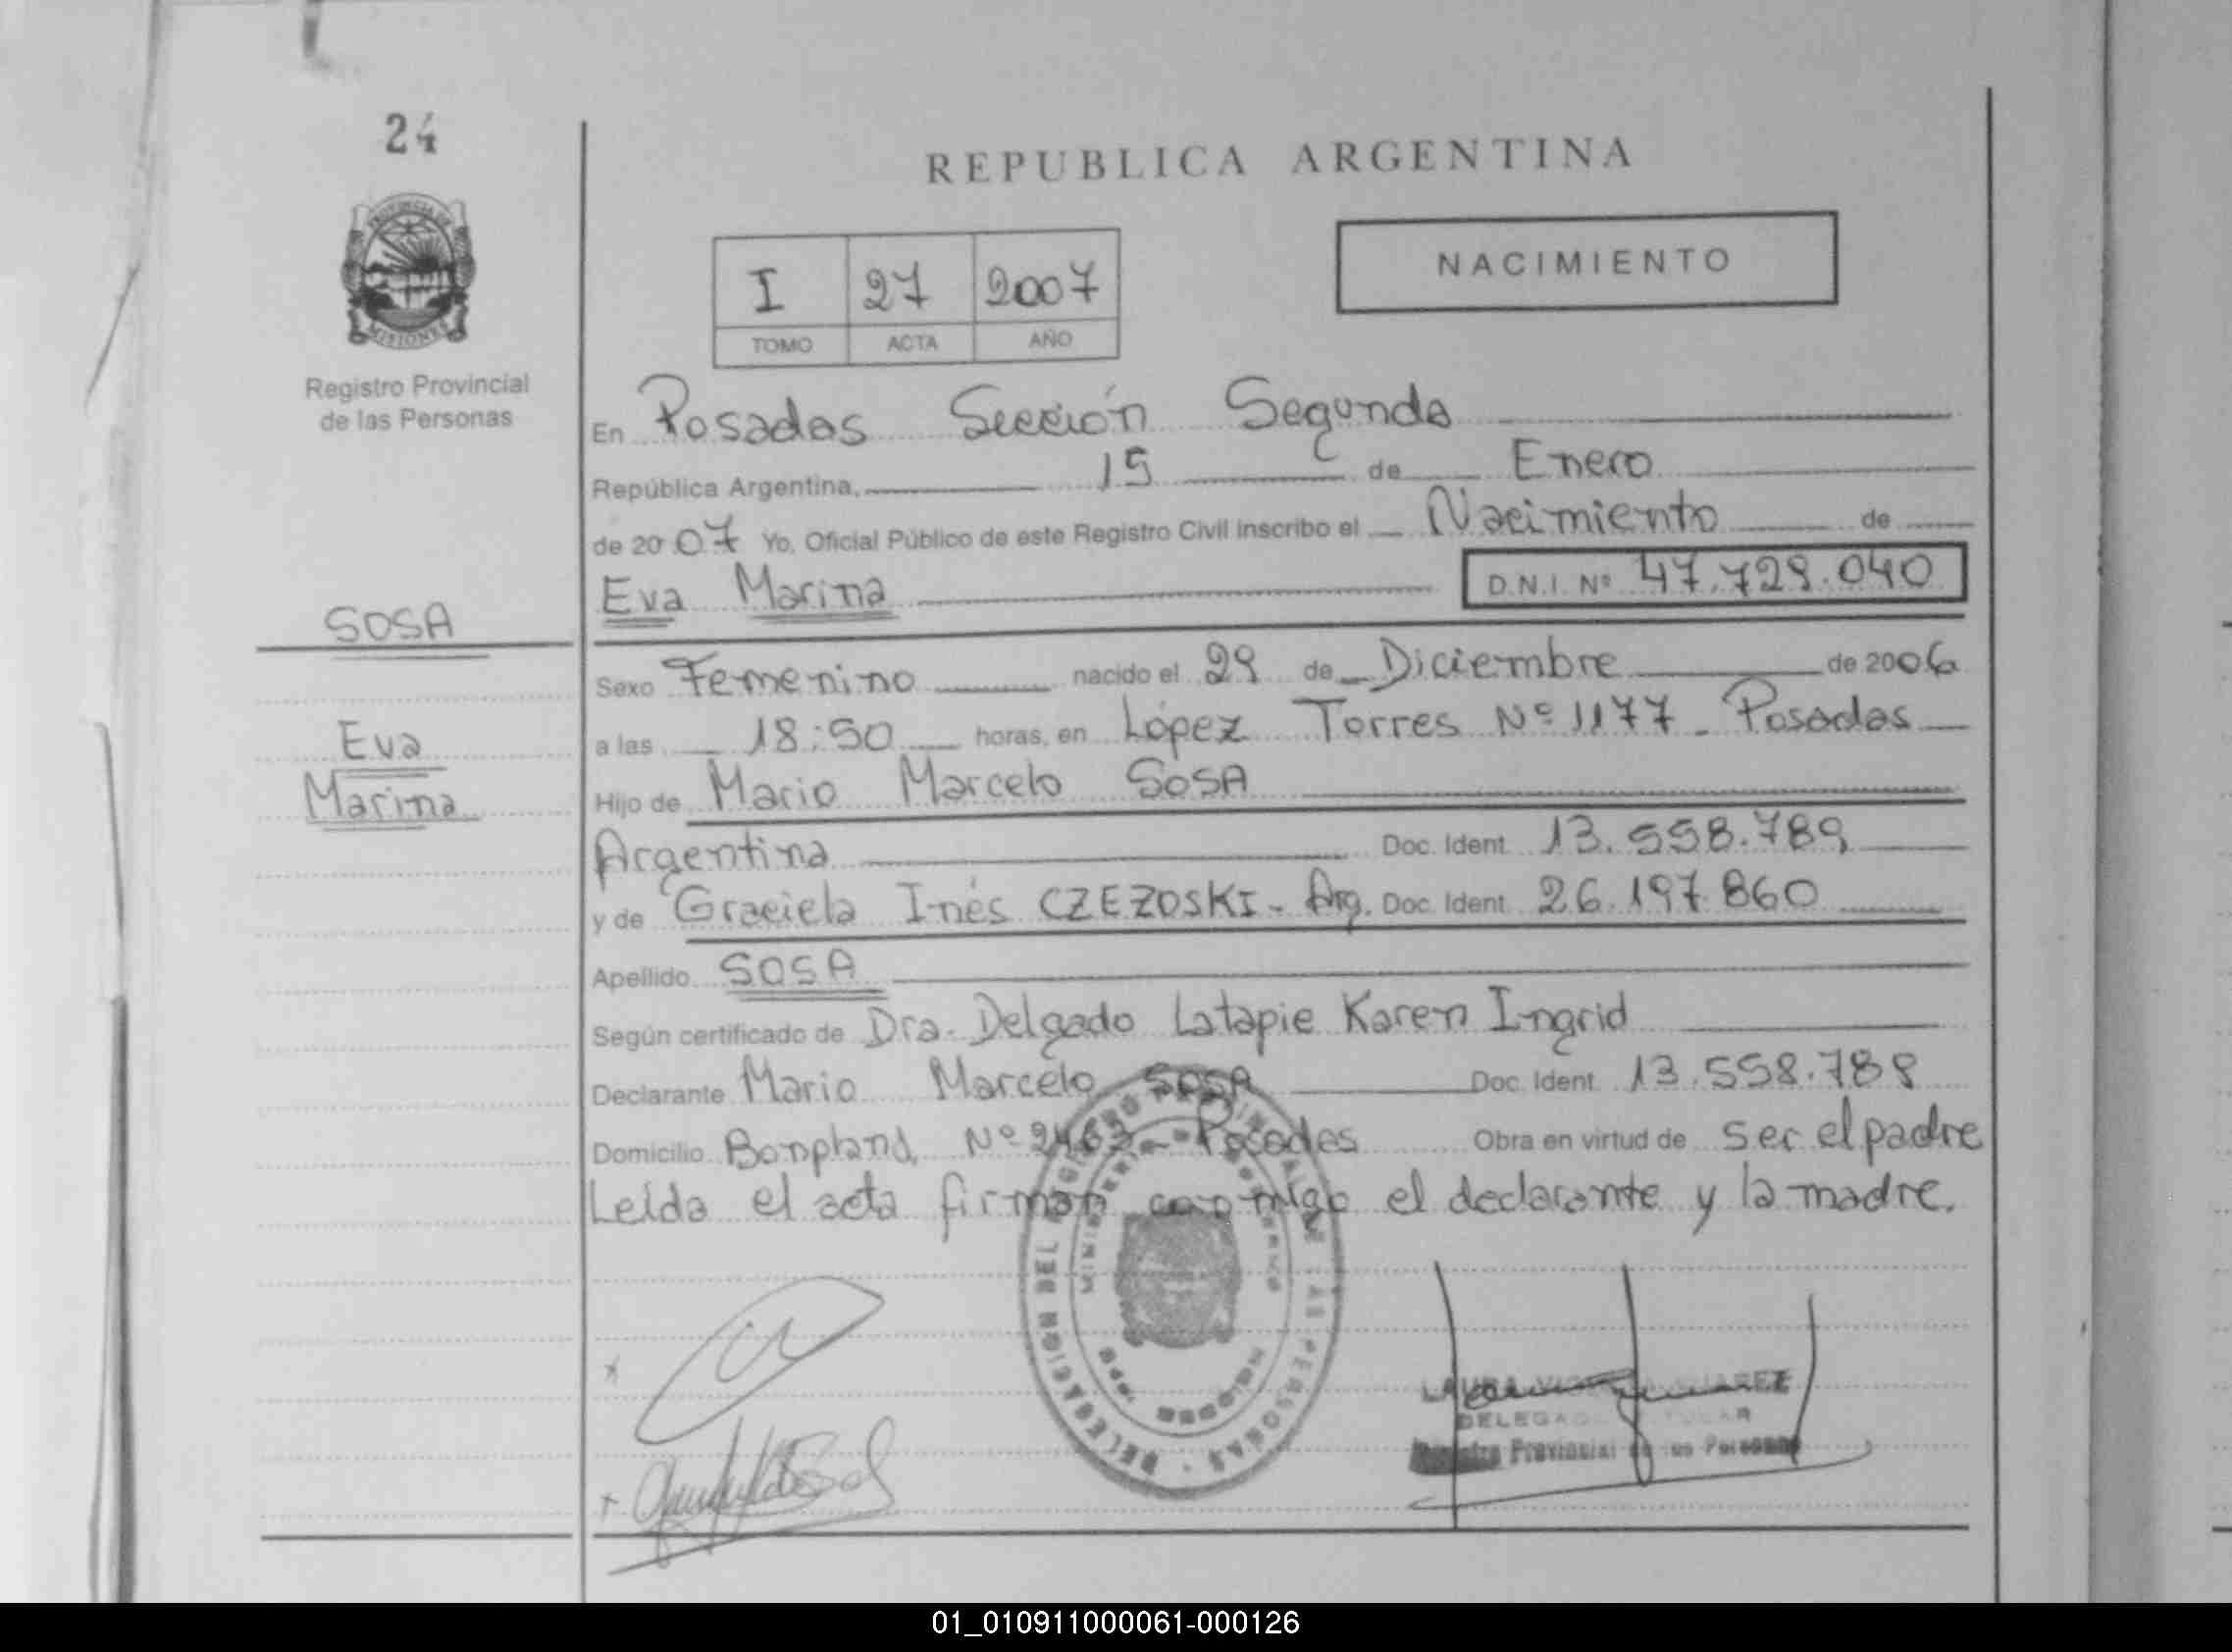 24
REPUBLICA ARGENTINA
PROVINCIA DE
MISIONES
NACIMIENTO
I 27 2007
TOMO ACTA AÑO
Registro Provincial
de las Personas
En Posadas Sección Segunda
República Argentina, 15 de Enero
de 2007 Yo, Oficial Público de este Registro Civil inscribo el Nacimiento de
Eva Marina D.N.I. Nº 47.729.040
SOSA
Sexo Femenino nacido el 29 de Diciembre de 2006
Eva
a las 18:50 horas, en López Torres Nº 1177 - Posadas
Marina
Hijo de Mario Marcelo SOSA
Argentina Doc. Ident. 13.558.789
y de Graciela Inés CZEZOSKI - Arg. Doc. Ident. 26.197.860
Apellido SOSA
Según certificado de Dra. Delgado Latapie Karen Ingrid
Declarante Mario Marcelo SOSA Doc. Ident. 13.558.789
Domicilio Bonpland, Nº 2463 - Posadas Obra en virtud de ser el padre
Leída el acta firman conmigo el declarante y la madre.
DELEGACION DEL REGISTRO PROVINCIAL DE LAS PERSONAS
MISIONES
LAURA
Provincial
01_010911000061-000126